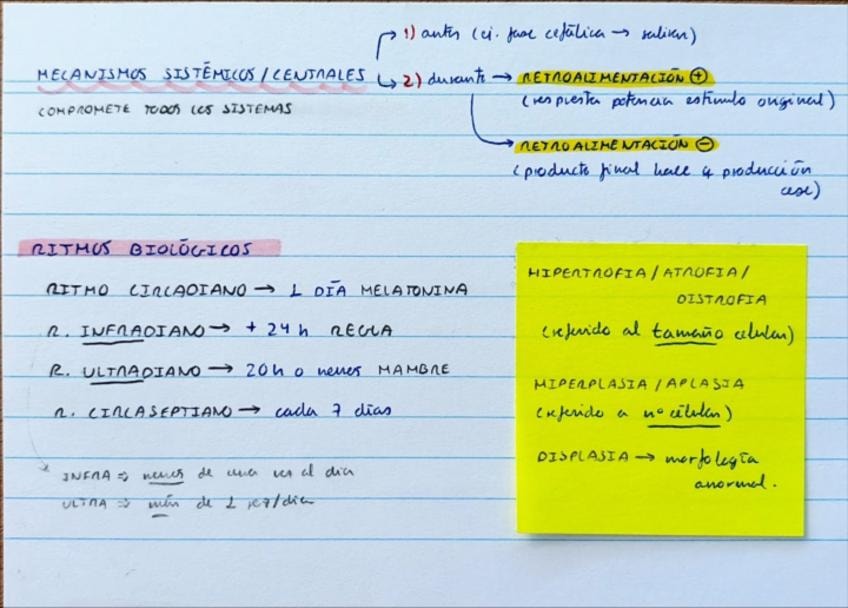 1) antes (ej. fase cefálica → salivar)
MECANISMOS SISTÉMICOS/CENTRALES
2) durante → RETROALIMENTACIÓN +
COMPROMETE TODOS LOS SISTEMAS
(respuesta potencia estímulo original)
RETROALIMENTACIÓN −
(producto final hace q producción
cese)
RITMOS BIOLÓGICOS
RITMO CIRCADIANO → 1 DÍA MELATONINA
R. INFRADIANO → + 24 h REGLA
R. ULTRADIANO → 20h o menos HAMBRE
R. CIRCASEPTIANO → cada 7 días
INFRA ⇒ menos de una vez al día
ULTRA ⇒ más de 1 vez/día
HIPERTROFIA / ATROFIA /
DISTROFIA
(referido al tamaño celular)
HIPERPLASIA / APLASIA
(referido a nº células)
DISPLASIA → morfología
anormal.